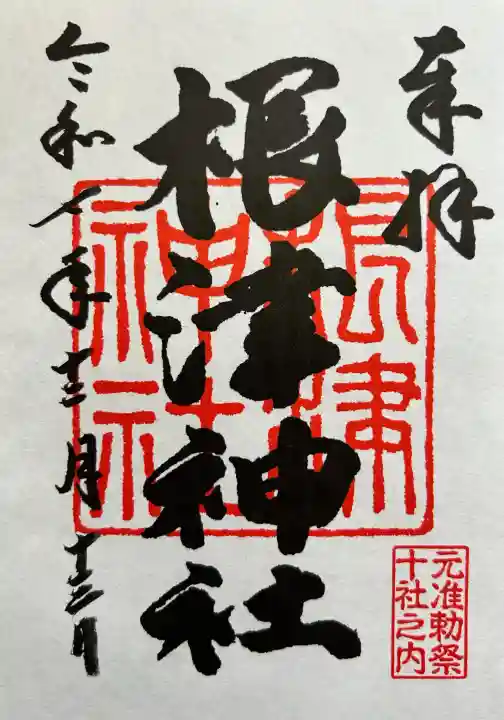 奉拝
根津神社
根津神社
元准勅祭
十社之内
令和 年十二月 日